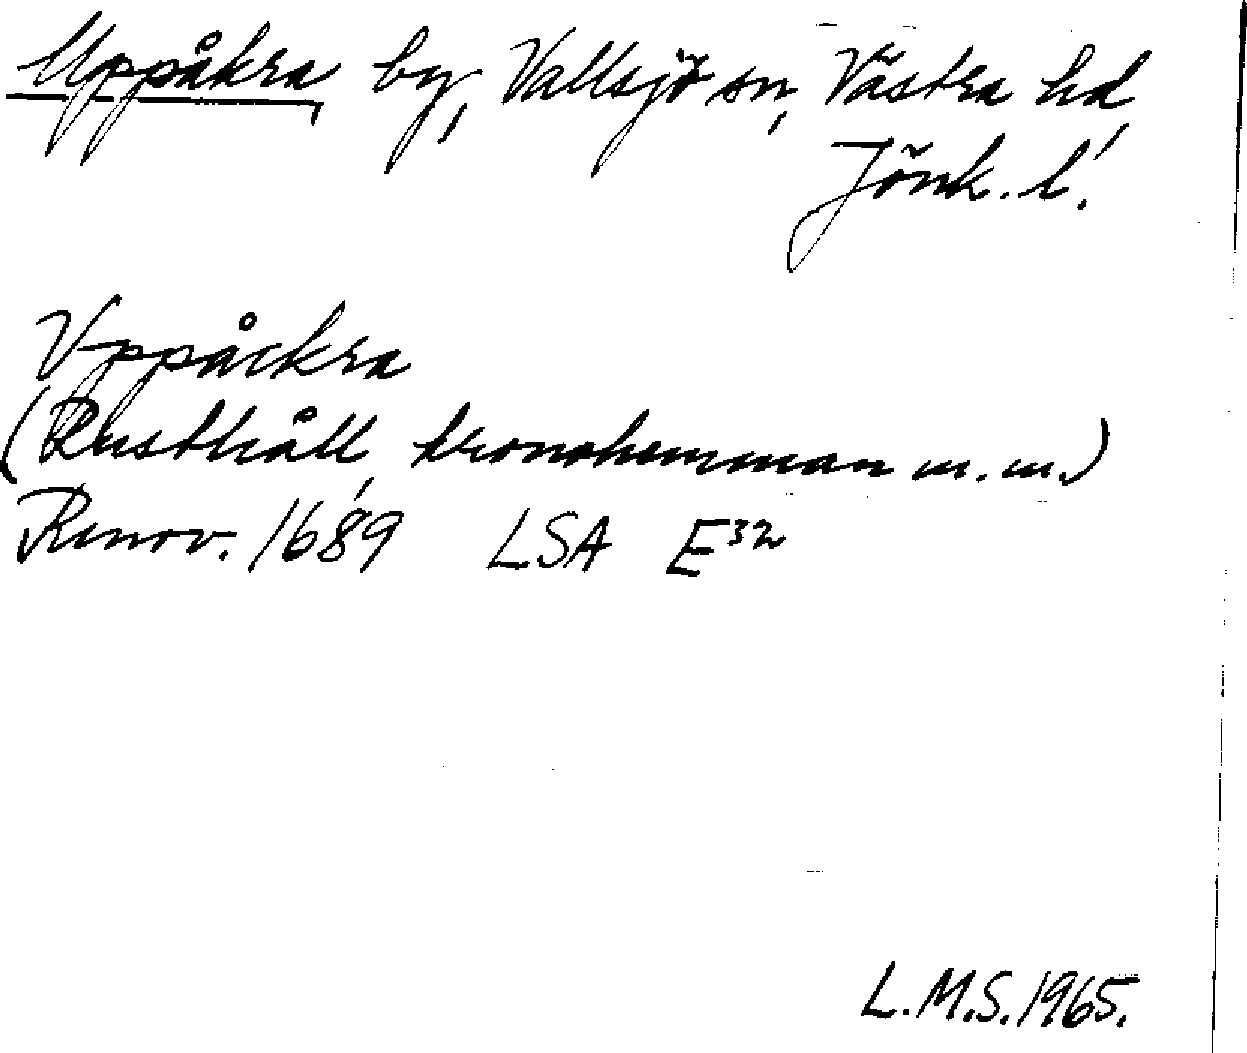 Uppåkra, by, Vallsjö sn, Västra hd,
Jönk. l.
Vppåckra
(Rusthåll, kronohemman m. m.)
Renov. 1689 LSA E32
L.M.S. 1965.